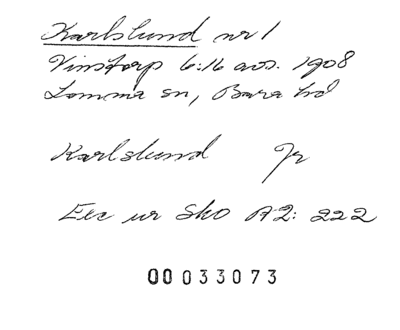 Karlslund nr 1
Vinstorp 6:16 avs. 1908
Lomma sn, Bara hd
Karlslund Jr
Exc ur Sko A2: 222
00033073